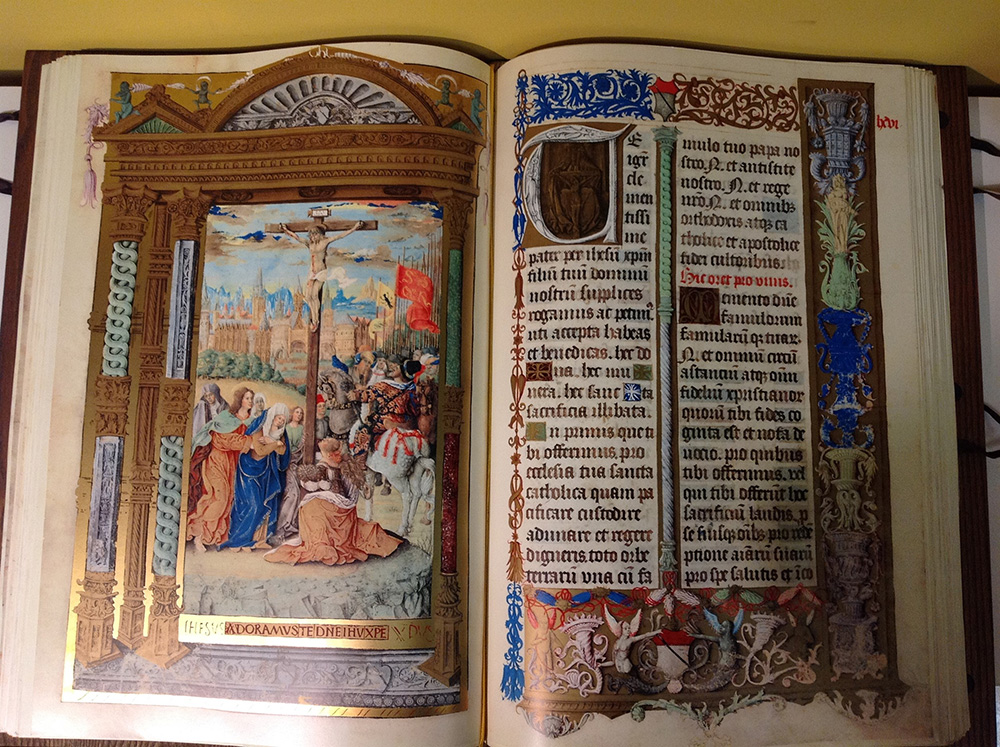 ADORAMUS TE DNE IHU XPE
TE
igit̄
cle
men
tissi
me
pater per ihesū xpm̄
filiū tuū dominū
nostrū supplices
rogamus ac petim⁹
uti accepta habeas
et benedicas. hec do
na. hec mu
nera. hec sanc ta
sacrificia illibata.
In primis que ti
bi offerimus pro
ecclesia tua sancta
catholica quam pa
cificare custodire
adunare et regere
digneris. toto orbe
terrarū una cū fa
mulo tuo papa no
stro. N. et antistite
nostro. N. et rege
nr̄o. N. et omnibꝫ
orthodoxis atqꝫ ca
tholice et apostolice
fidei cultoribus.
Hic oret pro vivis.
Memento dn̄e
famulorum
famularūqꝫ tuarꝫ
N. et omniū circū
astanciū atqꝫ om̄
fidelium xpistianorꝫ
quorū tibi fides co
gnita est et nota de
uocio. pro quibus
tibi offerimus. vel
qui tibi offerūt hoc
sacrificiū laudis. p
se suisqꝫ oībꝫ pro rede
ptione aīarū suarū
pro spe salutis et īco